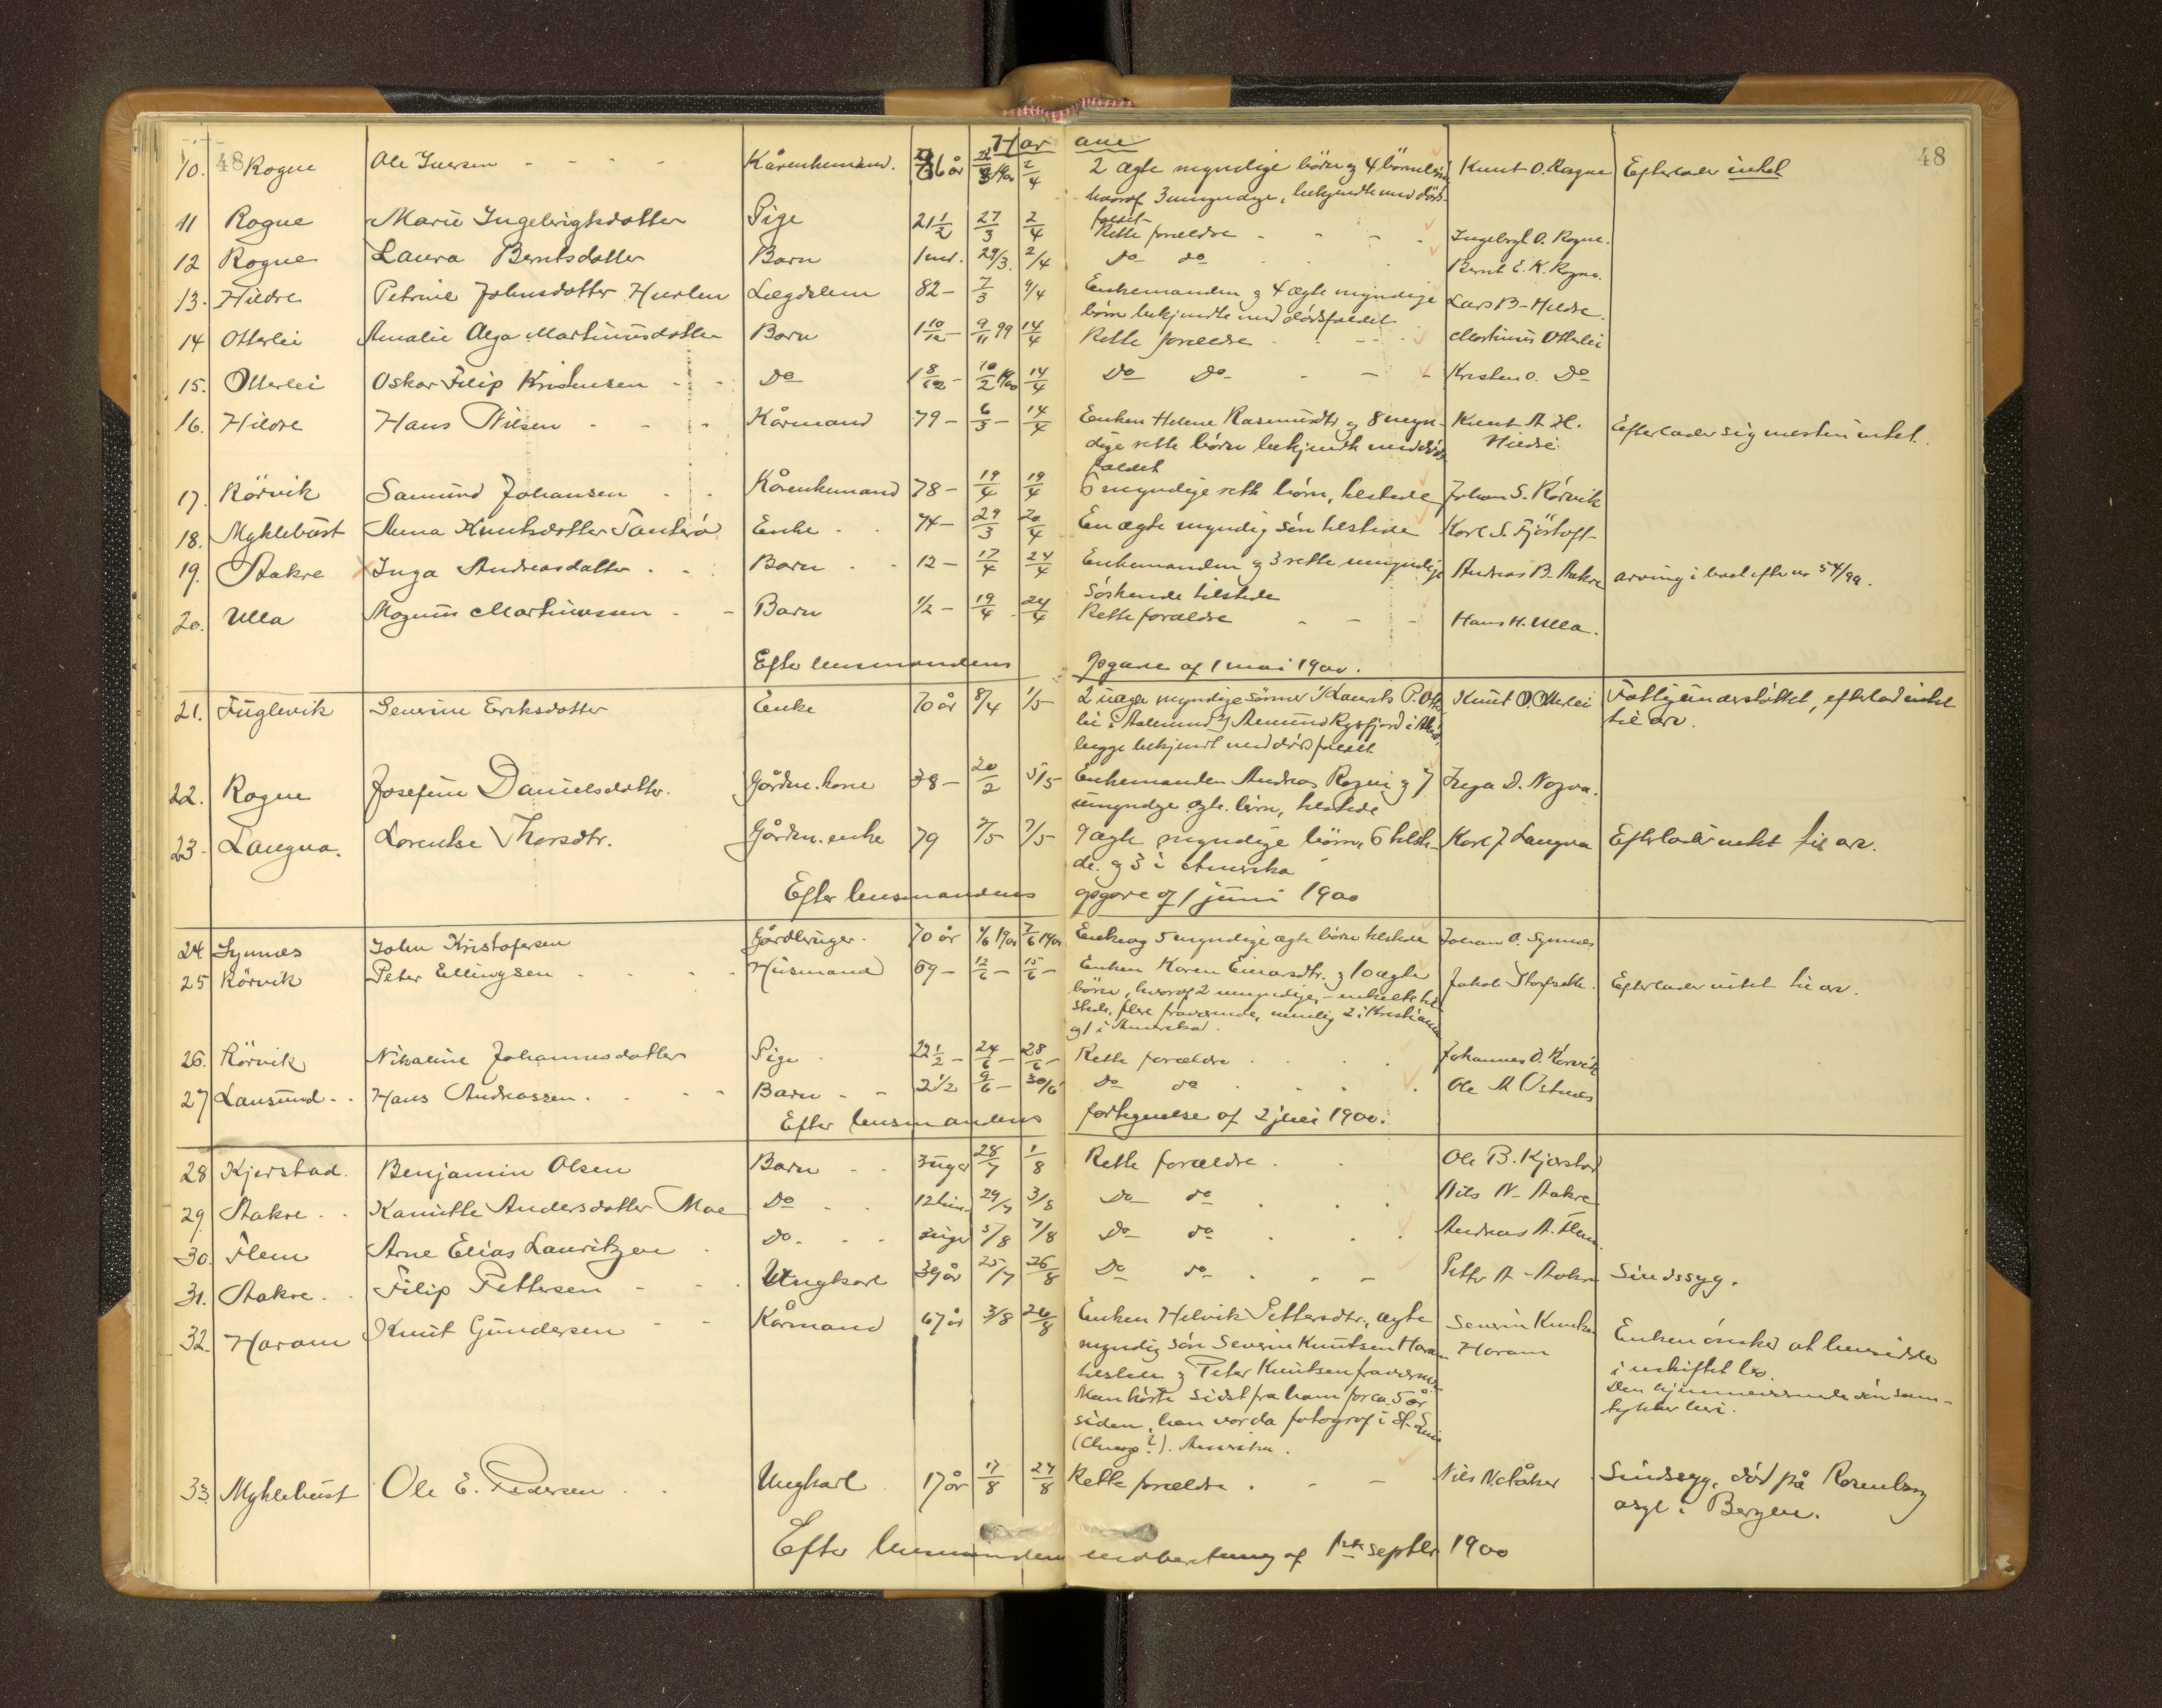 Har ane
48 48
10. Rogne Ole Iversen - - - - Kårenkemand. 76 år 22/3 1900 2/4 2 ægte myndige børn og 4 børnebørn Knut O. Rogne Efterlader intet
hvoraf 3 umyndige, bekjendte med døds-
faldet
11 Rogne Marie Ingebrigtsdatter Pige 21 1/2 27/3 2/4 Rette forældre - - - - Ingebrgt O. Rogne.
12 Rogne Laura Berntsdatter Barn 1 md. 29/3. 2/4 Do do Bernt E. K. Rogne.
13. Hildre Petrine Johnsdatter Hurlen Lægdslem 82 - 7/3 9/4 Enkemanden og 4 ægte myndige Lars B. Hildre.
børn bekjendte med dødsfaldet
14 Otterlei Amalie Olga Martinusdatter Barn 1 10/12 - 9/11 99 14/4 Rette forældre - - - Martinus Otterlei
15. Otterlei Oskar Filip Kristensen - - Do 1 8/12 - 10/2 1900 14/4 Do Do - - - Kristen O. Do
16. Hildre Hans Nilsen - - - Kårmand 79 - 6/3 - 14/4 Enken Helene Rasmusdtr og 8 myn- Knut A. H. Efterlader sig mesten intet.
dige rette børn bekjendt med døds- Hildre
faldet
17. Rörvik Samund Johansen - - Kårenkemand 78 - 19/4 19/4 6 myndige rette børn, tilstede Johan S. Rörvik
18. Myklebust Anna Knutsdatter Enke - - 74 - 29/3 20/4 En ægte myndig sön tilstede Karl S. Fjörtoft
19. Aakre Inga Andreasdatter - - Barn - - 12 - 17/4 24/4 Enkemanden og 3 rette umyndige Andreas B. Aakre arving i boet efter no 54/99.
Söskende tilstede
20. Ulla Magnus Martinussen - - Barn 1/2 - 19/4 24/4 Rette forældre - - - Hans H. Ulla.
Efter lensmandens opgave af 1 mai 1900.
21. Fuglevik Severine Eriksdatter Enke 70 år 8/4 1/5 - 2 uægte myndige sönner Laurits P. Otter- Knut O. Otterlei Fattigunderstöttet, efterlod intet
lei i Aalesund og Aamund Rypfjord i til arv.
begge bekjendt med dödsfaldet
22. Rogne Josefine Danielsdatter. Gårdm. kone 38 - 20/2 5/5 Enkemanden Andreas Rogne og 7 D. Nogva.
umyndige ægte börn, tilstede
23 - Langva. Lorentse Thorsdtr. Gårdm. enke 79 2/5 7/5 9 ægte myndige börn, 6 tilste- Karl J. Langva Efterlader intet til arv.
de og 3 i Amerika
Efter lensmandens opgave af 1 juni 1900
24 Synnes John Kristofersen Gårdbruger. 70 år 4/6 1900 7/6 1900 Enke og 5 myndige ægte börn tilstede Johan O. Synnes
25 Rörvik Peter Ellingsen - - - - Husmand 69 - 12/6 - 15/6 - Enken Karen Einarsdtr. og 10 ægte Jakob Efterlader intet til arv.
börn, hvoraf 2 umyndige, - enkelte til-
stede, flere fraværende, nemlig 2 i Kristiania
og 1 i Amerika.
26. Rörvik Nikoline Johannesdatter Pige - 22 1/2 - 24/6 - 28/6 - Rette forældre - - - Johannes O. Rörvik
27 Lausund - - Hans Andreassen - - - - Barn - - 2 1/2 9/6 - 30/6 Do do - - - - Ole A Ostnes
Efter lensmandens fortegnelse af 2 juli 1900.
28 Kjerstad. Benjamin Olsen Barn - - 3 uger 28/7 1/8 Rette forældre - - Ole B. Kjerstad
29 Aakre - - Kamitte Andersdatter Moe Do - - 12 tim. 29/7 3/8 Do do - - - Nils N. Aakre
30. Flem Arne Elias Lauritzen - Do. - - uger 5/8 7/8 Do do - - - Andreas A. Flem.
31. Aakre. - Filip Pettersen - - - Ungkarl 39 år 25/7 26/8 Do do - - - Petter A. Aakre Sindssyg.
32. Haram Knut Gundersen - - Kårmand 67 år 3/8 26/8 Enken Helvik Pettersdtr., ægte Severin Knutsen Enken önsker at hensidde
myndig sön Severin Knutsen Haram Haram i uskiftet bo.
tilstede og Peter Knutsen fraværende. Den hjemmeværende sön sam-
Man hörte sidst fra ham for ca. 5 år tykker heri.
siden, han var da fotograf i St.
(Chicago?). Amerika.
33. Myklebust Ole E. Pedersen - - Ungkarl 17 år 17/8 27/8 Rette forældre - - - Nils N. Åkre Sindssyg, död på Rosenberg
asyl i Bergen.
Efter lensmandens indberetning af 1ste septbr 1900